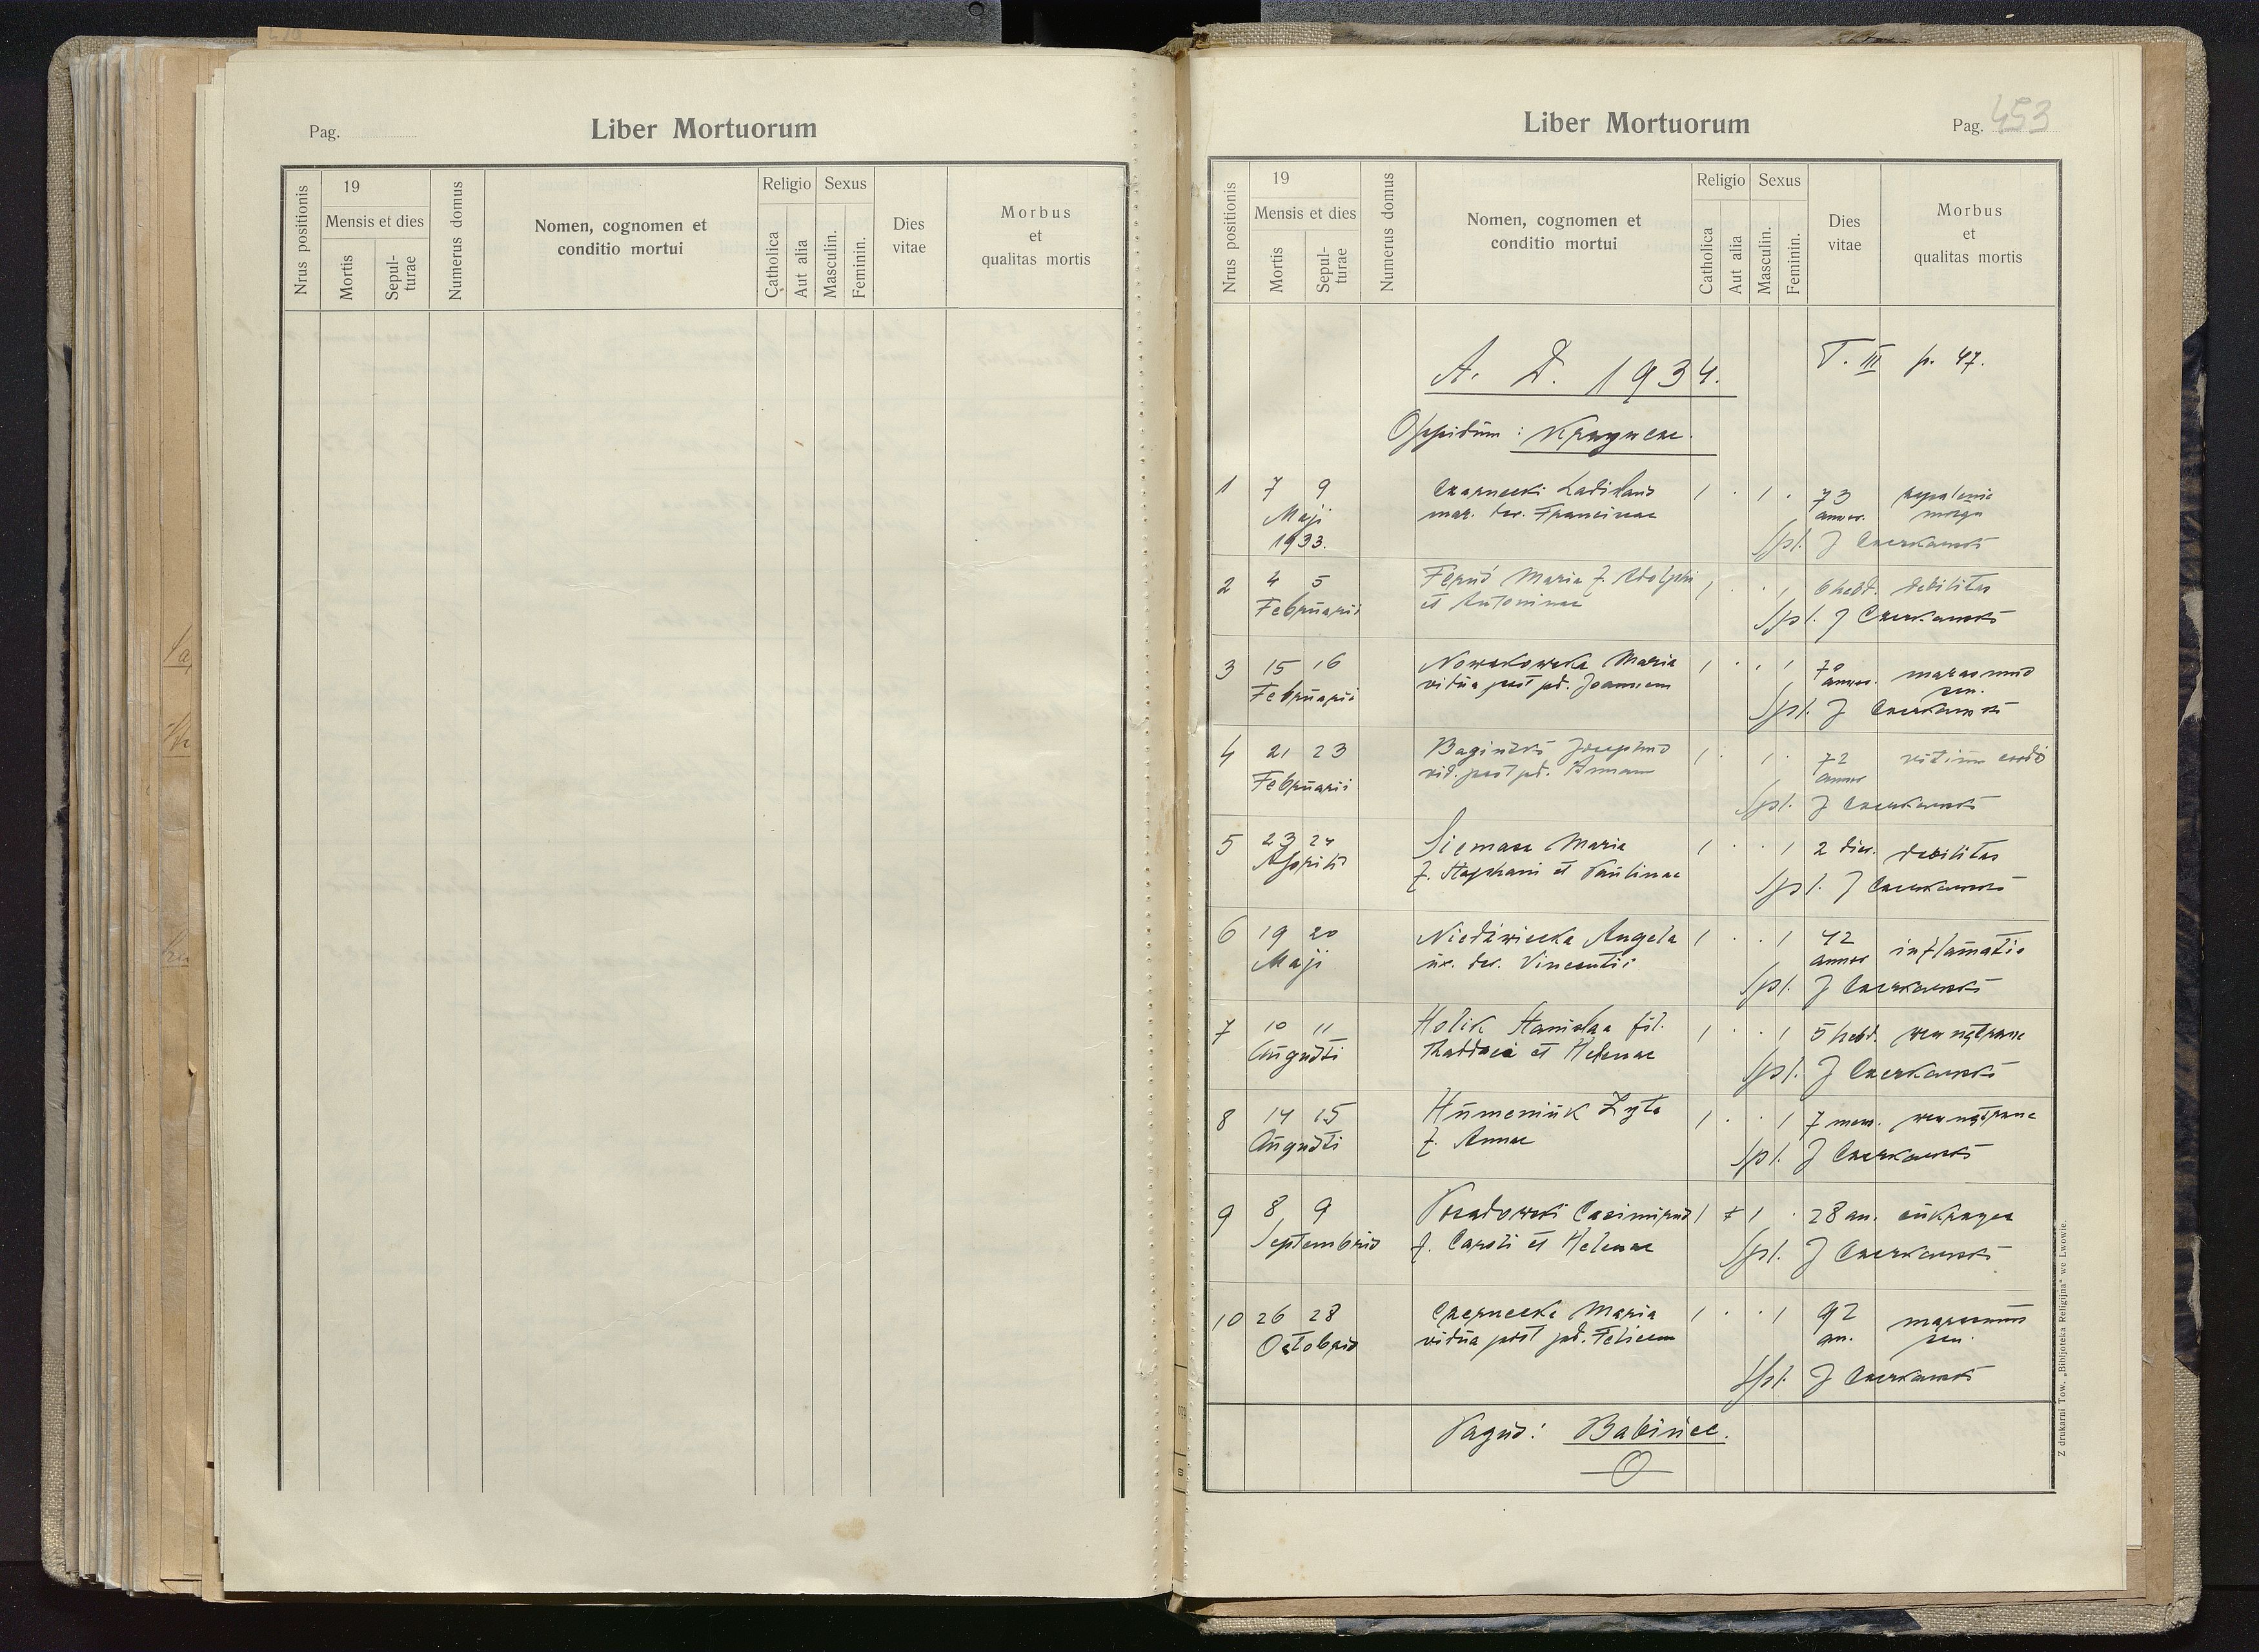 Pag.
Liber Mortuorum
Nrus positionis
19
Mensis et dies
Mortis
Sepul-
turae
Numerus domus
Nomen, cognomen et
conditio mortui
Religio
Catholica
Aut alia
Sexus
Masculin.
Feminin.
Dies
vitae
Morbus
et
qualitas mortis
Liber Mortuorum
Pag. 453
Nrus positionis
19
Mensis et dies
Mortis
Sepul-
turae
Numerus domus
Nomen, cognomen et
conditio mortui
Religio
Catholica
Aut alia
Sexus
Masculin.
Feminin.
Dies
vitae
Morbus
et
qualitas mortis
A. D. 1934.
T. III p. 47.
Oppidum:
1 7 9 Czarnecki Ladislaus 1 . 1 . 73 zapalenie
Maji mar. der. Franciscae annor. mózgu
1933. Spl. J Czerkawski
2 4 5 Maria f. Adolphi 1 . . 1 6 hebd. debilitas
Februarii et Antoninae
Spl. J Czerkawski
3 15 16 Nowakowska Maria 1 . . 1 70 marasmus
Februarii vidua post pd. Joannem annor. sen.
Spl. J Czerkawski
4 21 23 Bagiński Josephus 1 . 1 . 72 vitium cordis
Februarii vid. post pd. Annam annor
Spl. J Czerkawski
5 23 24 Maria 1 . . 1 2 dier. debilitas
Aprilis f. Stephani et Paulinae
Spl. J Czerkawski
6 19 20 Niedźwiecka Angela 1 . . 1 42 inflamatio
Maji ux. der. Vincentii annor
Spl. J Czerkawski
7 10 11 Holik Stanislaa fil. 1 . . 1 5 hebd. wewnętrzne
Augusti Thaddaei et Helenae
Spl. J Czerkawski
8 14 15 Humeniuk Zyta 1 . . 1 7 mens. wewnętrzne
Augusti f. Annae
Spl. J Czerkawski
9 8 9 Casimirus 1 1 . 28 an.
Septembris f. Caroli et Helenae
Spl. J Czerkawski
10 26 28 Czarnecka Maria 1 . . 1 92 marasmus
Octobris vidua post pd. Felicem an. sen.
Spl. J Czerkawski
Pagus: Babińce.
Z drukarni Tow. „Bibljoteka Religijna" we Lwowie.